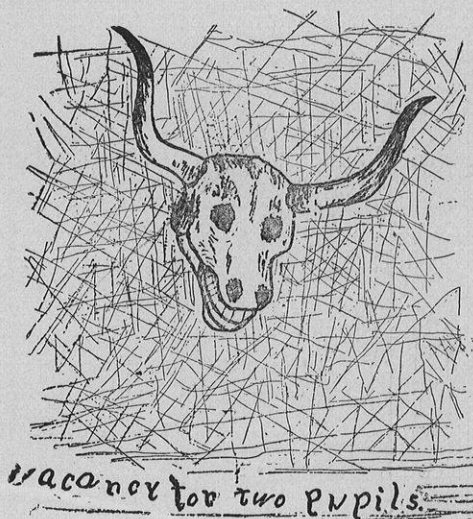 vacancy for two pupils.